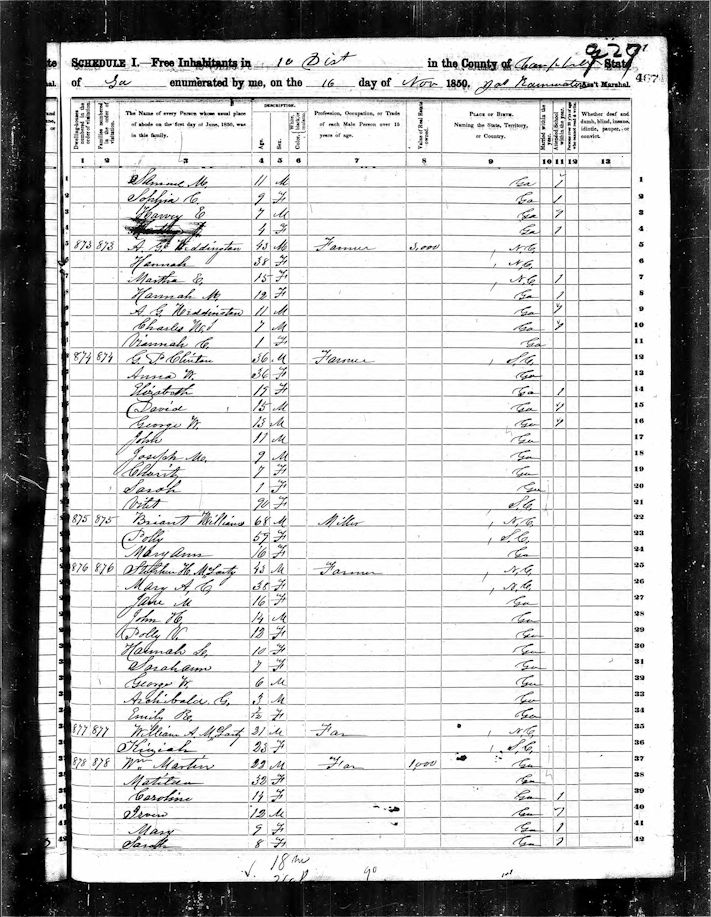 929
SCHEDULE I.—Free Inhabitants in 10 Dist in the County of Campbell State
of Ga enumerated by me, on the 16 day of Nov 1850. Ass't Marshal.
467
DESCRIPTION.
Dwelling-houses numbered in the order of visitation.
Families numbered in the order of visitation.
The Name of every Person whose usual place of abode on the first day of June, 1850, was in this family.
Age.
Sex.
White, black, or mulatto.
Color,
Profession, Occupation, or Trade of each Male Person over 15 years of age.
Value of Real Estate owned.
PLACE OF BIRTH. Naming the State, Territory, or Country.
Married within the year.
Attended School within the year.
Whether deaf and dumb, blind, insane, idiotic, pauper, or convict.
1 2 3 4 5 6 7 8 9 10 11 12 13
1 Samuel M. 11 M Ga 1 1
2 Sophia C. 9 F Ga 1 2
3 Harvey E 7 M Ga 1 3
4 4 F Ga 1 4
5 873 873 A. G. Weddington 43 M Farmer 3,000 N.C. 5
6 Hannah 38 F N.C. 6
7 Martha E. 15 F N.C. 1 7
8 Hannah M. 12 F Ga 1 8
9 A G Weddington 11 M Ga 1 9
10 Charles W. 7 M Ga 1 10
11 1 F Ga 11
12 874 874 G. P. Clinton 36 M Farmer S.C. 12
13 Anna W. 36 F Ga 13
14 Elizabeth 17 F Ga 1 14
15 David 15 M Ga 1 15
16 George W. 13 M Ga 1 16
17 John 11 M Ga 17
18 Joseph M. 9 M Ga 18
19 Charity 7 F Ga 19
20 Sarah 1 F Ga 20
21 90 F S.C. 21
22 875 875 Briant Williams 68 M Miller N.C. 22
23 Polly 57 F S.C. 23
24 Mary Ann 16 F Ga 24
25 876 876 Stephen H. McLarty 43 M Farmer N.C. 25
26 Mary A. C 38 F N.C. 26
27 Jane M 16 F Ga 27
28 John H. 14 M Ga 28
29 Polly E. 12 F Ga 29
30 Hannah L. 10 F Ga 30
31 Sarah ann 7 F Ga 31
32 George W. 6 M Ga 32
33 Archibald G. 3 M Ga 33
34 Emily R. F Ga 34
35 877 877 William A McLarty 21 M Far N.C. 35
36 Kiziah 23 F S.C. 36
37 878 878 Wm Martin 22 M Far 1000 Ga 37
38 Matilda 32 F Ga 38
39 Caroline 14 F Ga 1 39
40 Irvin 12 M Ga 1 40
41 Mary 9 F Ga 1 41
42 Sarah 8 F Ga 1 42
18 m
90